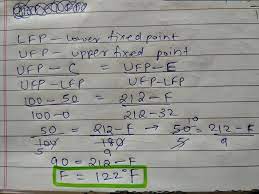 LFP - lower fixed point
UFP - upper fixed point
UFP - C = UFP - F
UFP - LFP UFP - LFP
100 - 50 = 212 - F
100 - 0 212 - 32
50 = 212 - F → 50 10 = 212 - F
100 180 5 9
5 9
90 = 212 - F
F = 122°F